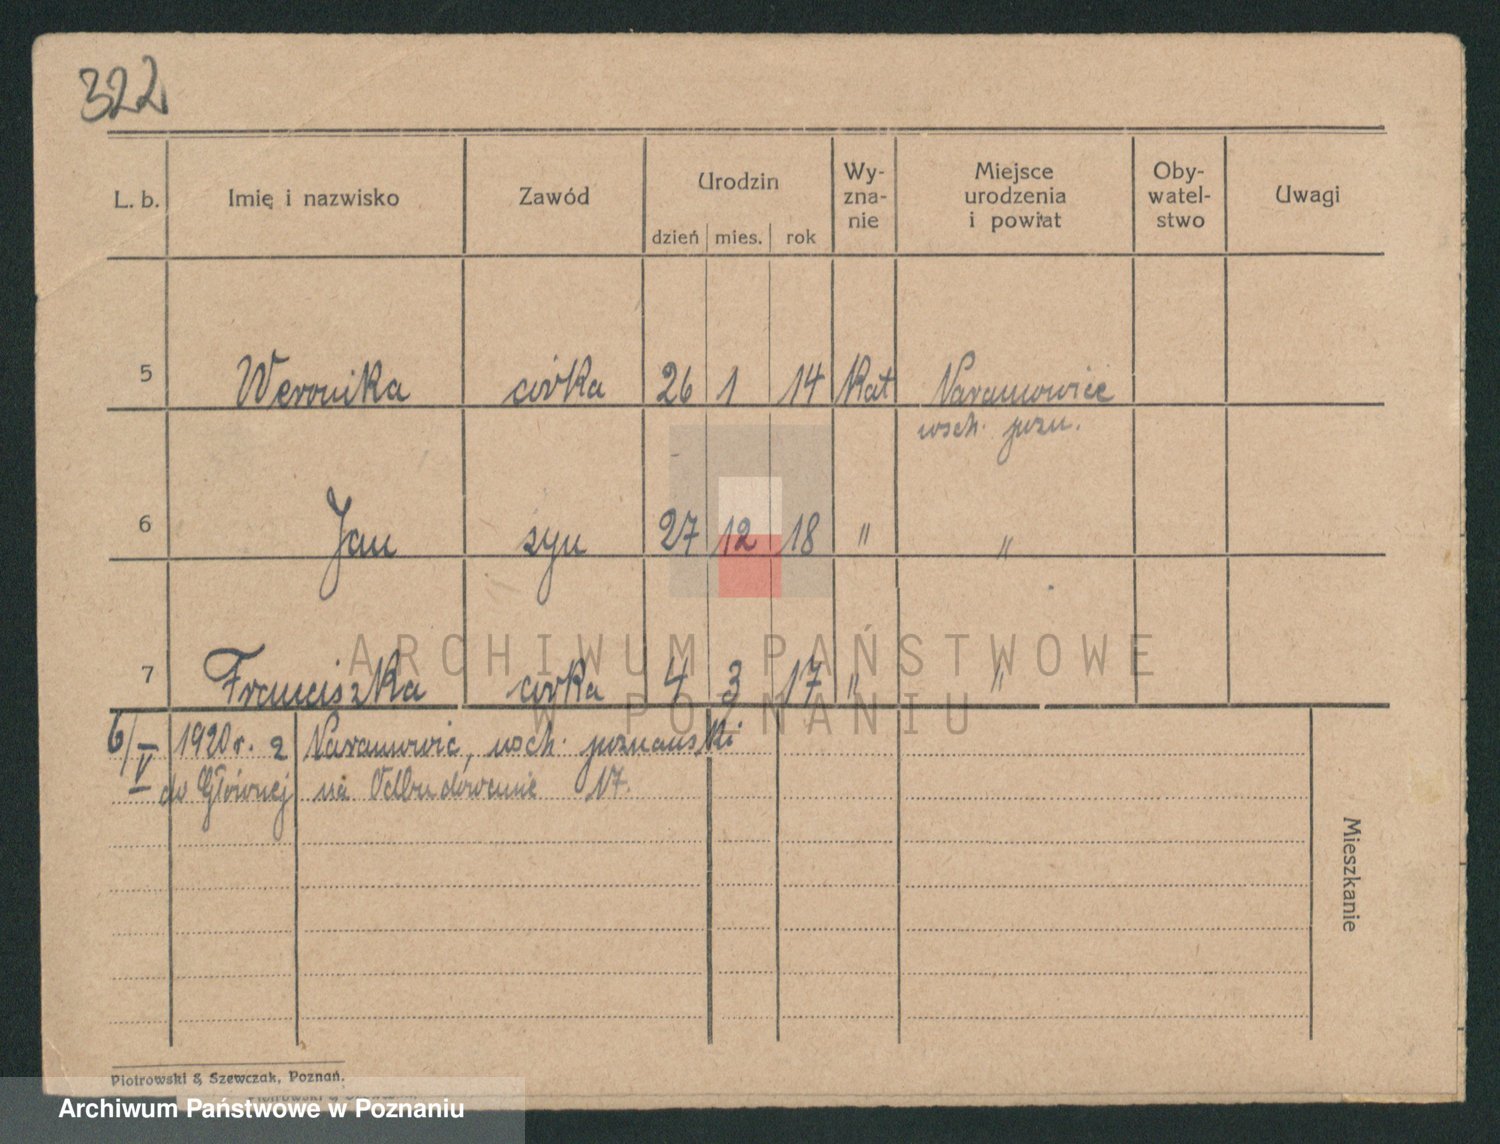 322
L. b. Imię i nazwisko Zawód Urodzin dzień mies. rok Wy-zna-nie Miejsce urodzenia i powiat Oby-watel-stwo Uwagi
5 Weronika córka 26 1 14 Kat Naramowice
wsch. pozn.
6 Jan syn 27 12 18 " "
7 Franciszka córka 4 3 17 " "
ARCHIWUM PAŃSTWOWE
W POZNANIU
6/V 1920 r. z Naramowic, wsch. poznański
do Głównej na Odbudowanie 17.
Mieszkanie
Piotrowski & Szewczak, Poznań.
Archiwum Państwowe w Poznaniu